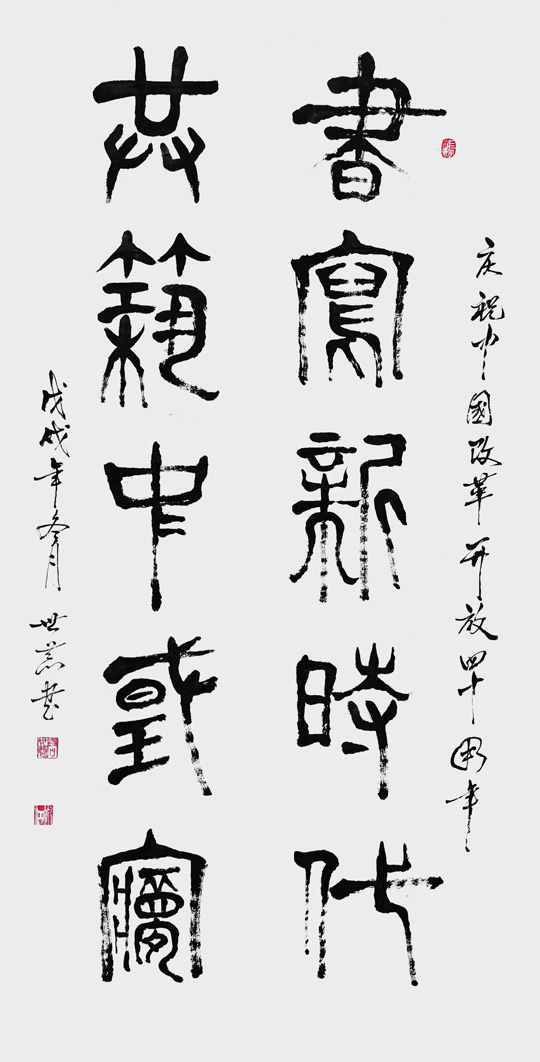 庆祝中國改革开放四十周年
書寫新時代
共築中國夢
戊戌年冬月 世 书